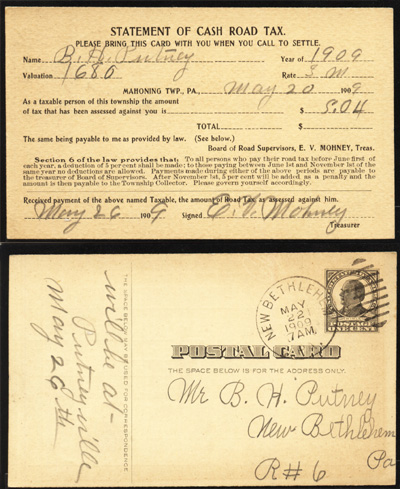 STATEMENT OF CASH ROAD TAX.
PLEASE BRING THIS CARD WITH YOU WHEN YOU CALL TO SETTLE.
Name B. H. Putney Year of 1909
Valuation 1680 Rate 3 M
MAHONING TWP., PA., May 20 1909
As a taxable person of this township the amount
of tax that has been assessed against you is $ 5.04
TOTAL $
The same being payable to me as provided by law. (See below.)
Board of Road Supervisors, E. V. MOHNEY, Treas.
Section 6 of the law provides that: To all persons who pay their road tax before June first of
each year, a deduction of 5 per cent shall be made; to those paying between June 1st and November 1st of the
same year no deductions are allowed. Payments made during either of the above periods are payable
to the treasurer of Board of Supervisors. After November 1st, 5 per cent will be added as a penalty and the
amount is then payable to the Township Collector. Please govern yourself accordingly.
Received payment of the above named Taxable, the amount of Road Tax, as assessed against him.
May 26 1909 Signed E. V. Mohney
Treasurer
will be at
Putneyville
May 26th
THE SPACE BELOW MAY BE USED FOR CORRESPONDENCE.
NEW BETHLEHEM
MAY
22
1909
7AM.
POSTAGE
ONE CENT
POSTAL CARD
THE SPACE BELOW IS FOR THE ADDRESS ONLY.
Mr B. H. Putney
New Bethlehem
Pa
R # 6